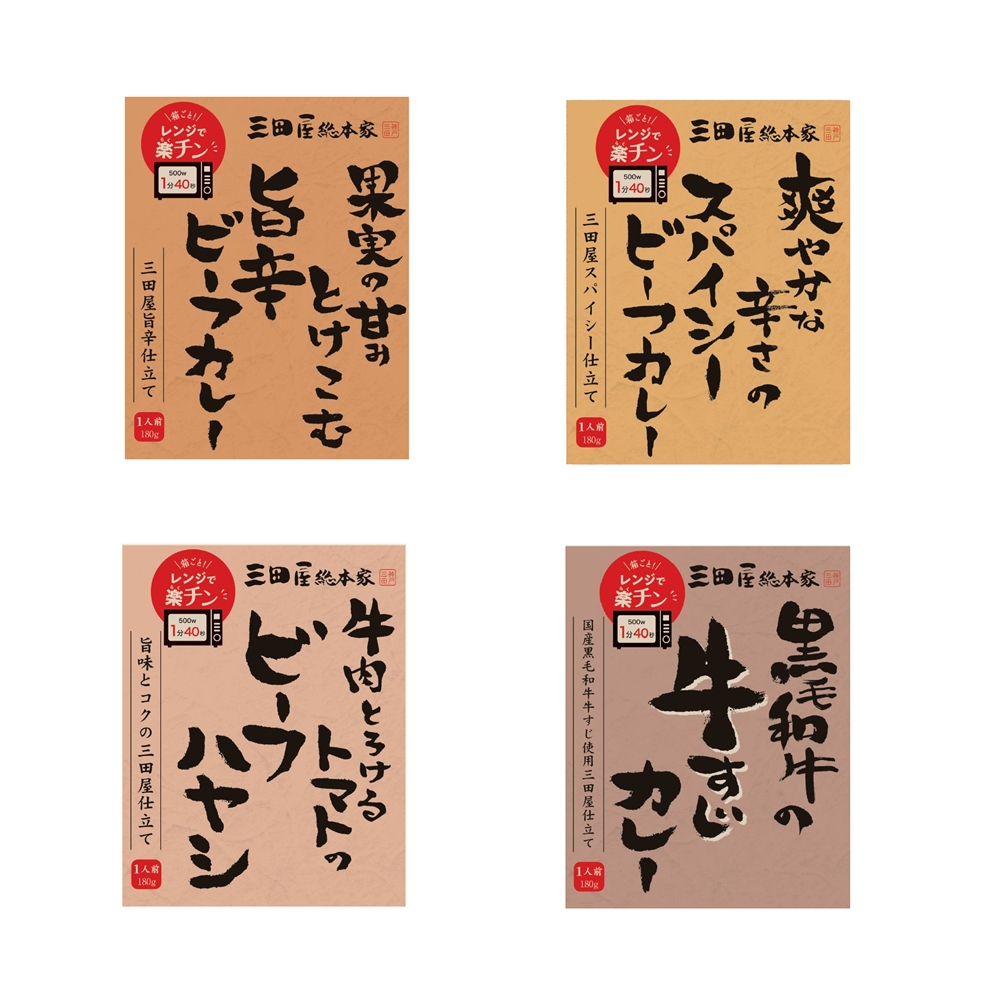 箱ごと!
レンジで
楽チン
らく
500w
1分40秒
三田屋総本家
神戸
三田
果実の甘み
とけこむ
旨辛
ビーフカレー
三田屋旨辛仕立て
1人前
180g
箱ごと!
レンジで
楽チン
らく
500w
1分40秒
三田屋総本家
神戸
三田
爽やかな
辛さの
スパイシー
ビーフカレー
三田屋スパイシー仕立て
1人前
180g
箱ごと!
レンジで
楽チン
らく
500w
1分40秒
三田屋総本家
神戸
三田
牛肉とろける
トマトの
ビーフ
ハヤシ
旨味とコクの三田屋仕立て
1人前
180g
箱ごと!
レンジで
楽チン
らく
500w
1分40秒
三田屋総本家
神戸
三田
黒毛和牛の
牛すじ
カレー
国産黒毛和牛牛すじ使用三田屋仕立て
1人前
180g